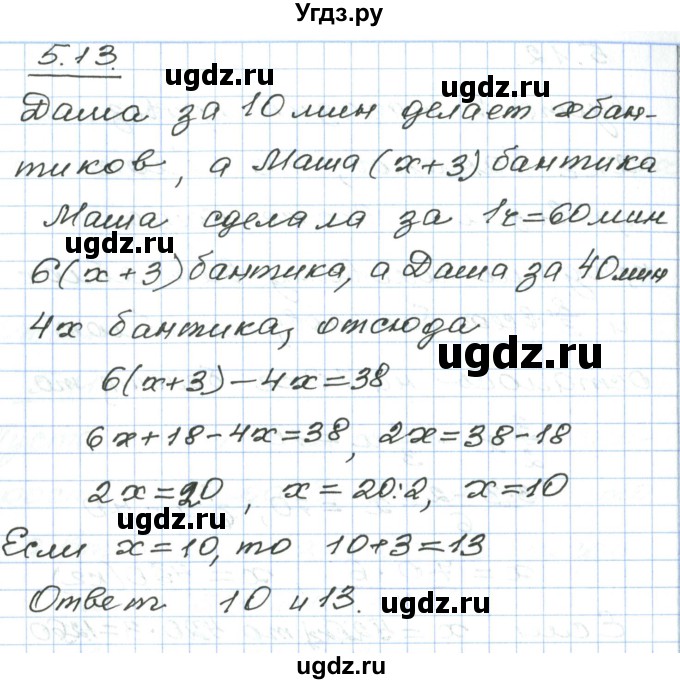 Угдз.ру
5.13.
ugdz.ru ugdz.ru
Даша за 10 мин делает х бан-
тиков, а Маша (x+3) бантика
Маша сделала за 1ч=60мин
ugdz.ru
6(x+3) бантика, а Даша за 40мин
4х бантика, отсюда
ugdz.ru
6(x+3)-4x=38
6x+18-4x=38, 2x=38-18
2x=20, x=20:2, x=10
ugdz.ru
Если x=10, то 10+3=13
Ответ 10 и 13.
ugdz.ru
ugdz.ru